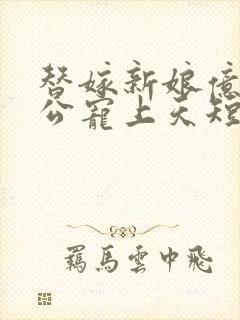 替嫁新娘億
公寵上天短
羈馬雲中飛